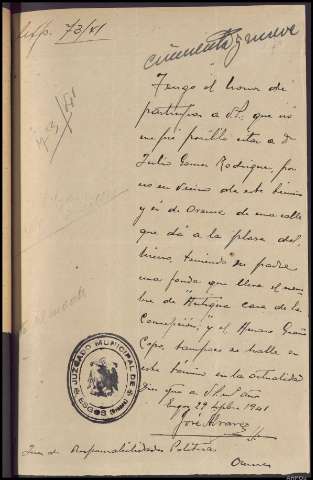 Exp. 73/41
cincuenta y nueve
73/41
Tengo el honor de
participar a V.S. que no
me fué posible citar a D
Julio Gomez Rodriguez, por
no ser vecino de este término
y si de Orense de una calle
que dá a la plaza del
hierro, teniendo su padre
una fonda que lleva el nom-
bre de "Antigua casa de la
Concepción", y el
tampoco se halla en
este termino en la actualidad
Dios que a V.S. m. años
Esgos 29 Sepbre 1941
José Alvarez
JUZGADO MUNICIPAL DE
ESGOS (Orense)
Juez de Responsabilidades Politicas
Orense